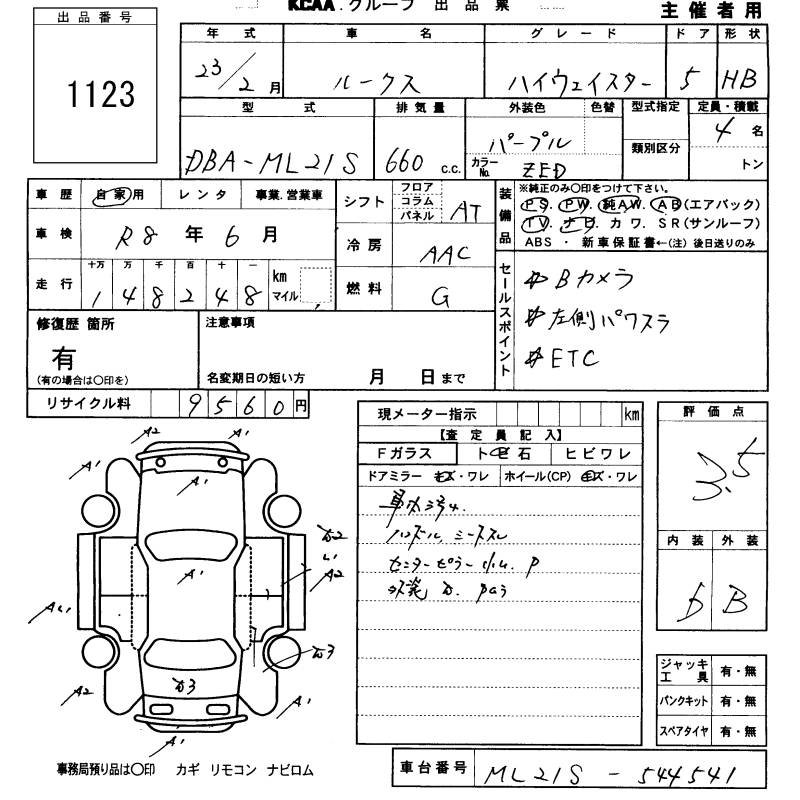 KCAA.グループ 出品票
主催者用
出品番号
1123
年式 車名 グレード ドア 形状
23/2月 ルークス ハイウェイスター 5 HB
型式 排気量 外装色 色替 型式指定 定員・積載
DBA-ML21S 660 c.c. パープル 類別区分 4 名
カラーNo. ZED トン
車歴 自家用 レンタ 事業.営業車
シフト フロア コラム パネル AT
装備品 ※純正のみ〇印をつけて下さい。
PS. PW. 純AW. AB(エアバック)
TV. ナビ. カワ. SR(サンルーフ)
ABS ・ 新車保証書←(注) 後日送りのみ
車検 R8 年 6 月
冷房 AAC
走行 十万 万 千 百 十 一 km マイル
1 4 8 2 4 8
燃料 G
セールスポイント
Bカメラ
左側パワスラ
ETC
修復歴 箇所
有
(有の場合は〇印を)
注意事項
名変期日の短い方 月 日まで
リサイクル料 9560円
現メーター指示 km
【査定員記入】
Fガラス ト石 ヒビワレ
ドアミラー キズ・ワレ ホイール(CP) キズ・ワレ
評価点
3.5
内装 外装
B
A2 A1
A1
A1
A1
A2
A1
A2
A1
ジャッキ工具 有・無
パンクキット 有・無
スペアタイヤ 有・無
事務局預り品は〇印 カギ リモコン ナビロム
車台番号 ML21S - 544541